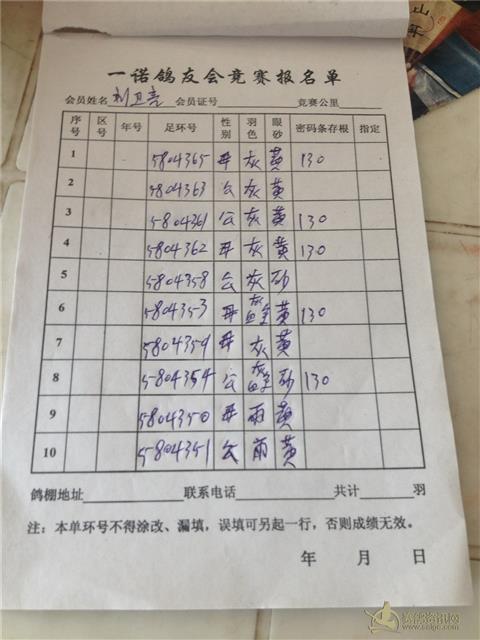 一诺鸽友会竞赛报名单
会员姓名 刘卫亮 会员证号 竞赛公里
序号 区号 年号 足环号 性别 羽色 眼砂 密码条存根 指定
1 5804365 母 灰 黄 130
2 5804363 公 灰 黄
3 5804361 公 灰 黄 130
4 5804362 母 灰 黄 130
5 5804358 公 灰 砂
6 5804353 母 灰 黄 130
7 5804359 母 灰 黄
8 5804354 公 灰 砂 130
9 5804350 母 雨 黄
10 5804351 公 雨 黄
鸽棚地址 联系电话 共计 羽
注：本单环号不得涂改、漏填，误填可另起一行，否则成绩无效。
年 月 日